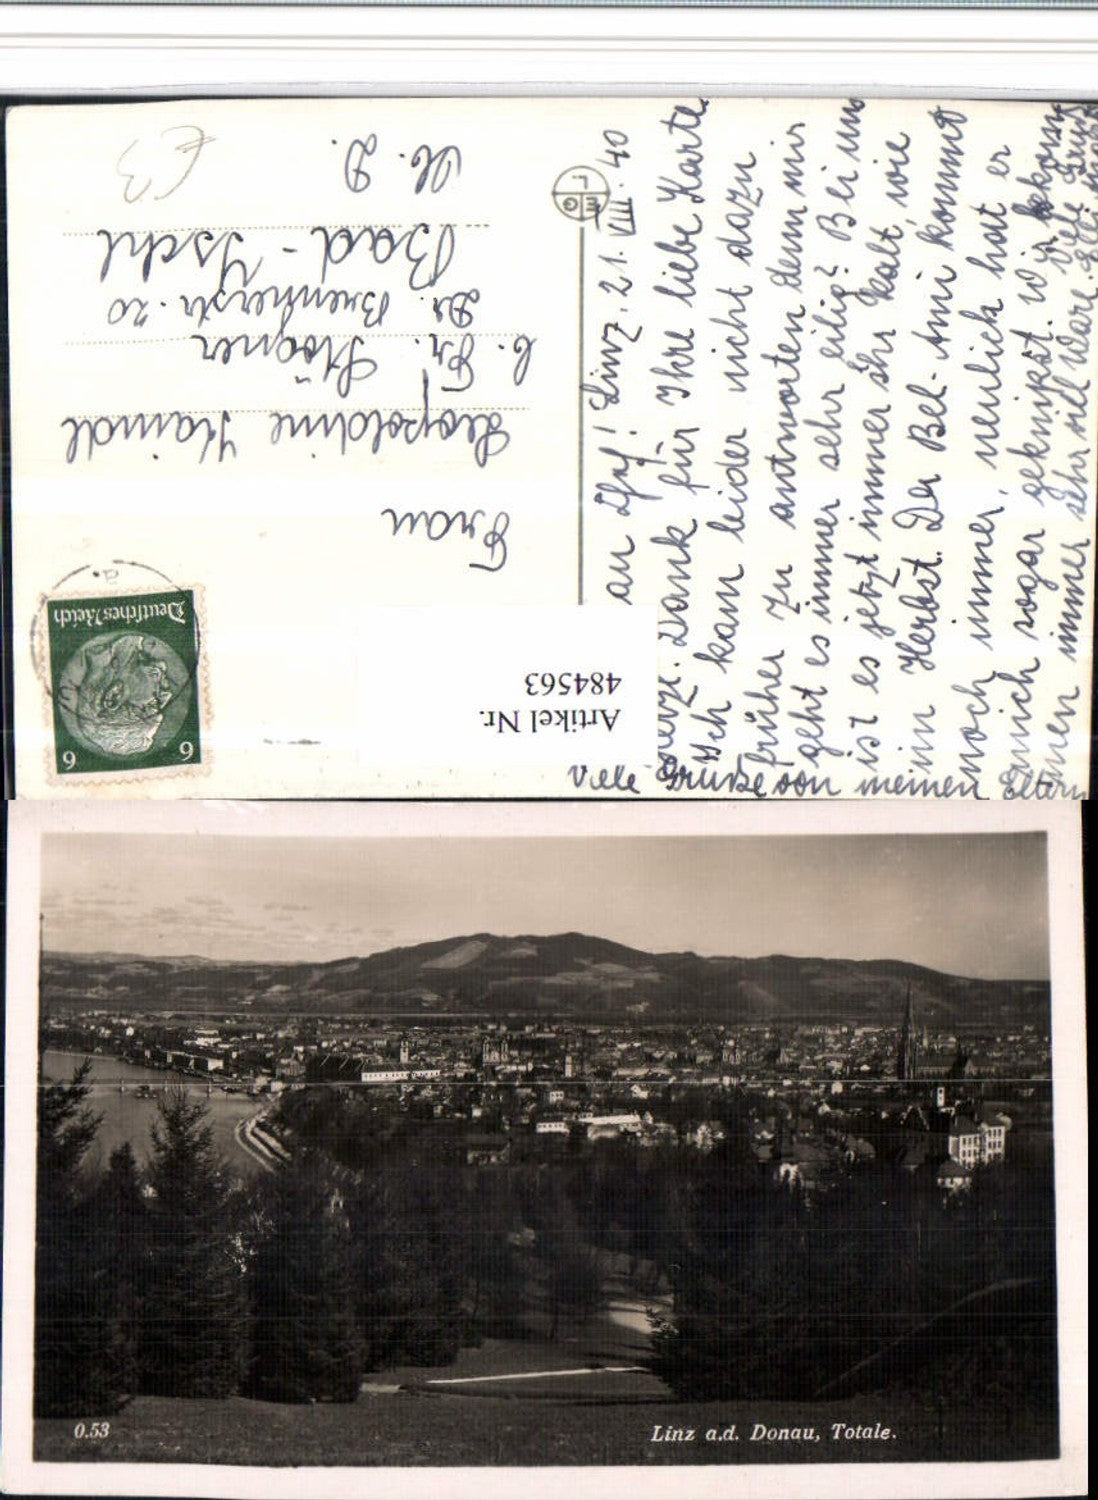 Linz, 21. VIII. 40
Dank für Ihre liebe Karte.
Ich kann leider nicht dazu
früher zu antworten denn mir
geht es immer sehr eilig? Bei uns
ist es jetzt immer sehr kalt, wie
im Herbst. Der Bel-Ami kommt
noch immer, neulich hat er
mich sogar geknixt. Wir
immer sehr viel Ware.
Viele Grüße von meinen Eltern
Frau
Leopoldine Haindl
b. Fr. Stögner
Dr. Brennerstr. 20
Bad-Ischl
O. D.
€3
Deutsches Reich
6 6
Artikel Nr.
484563
L
EG
0.53
Linz a.d. Donau, Totale.